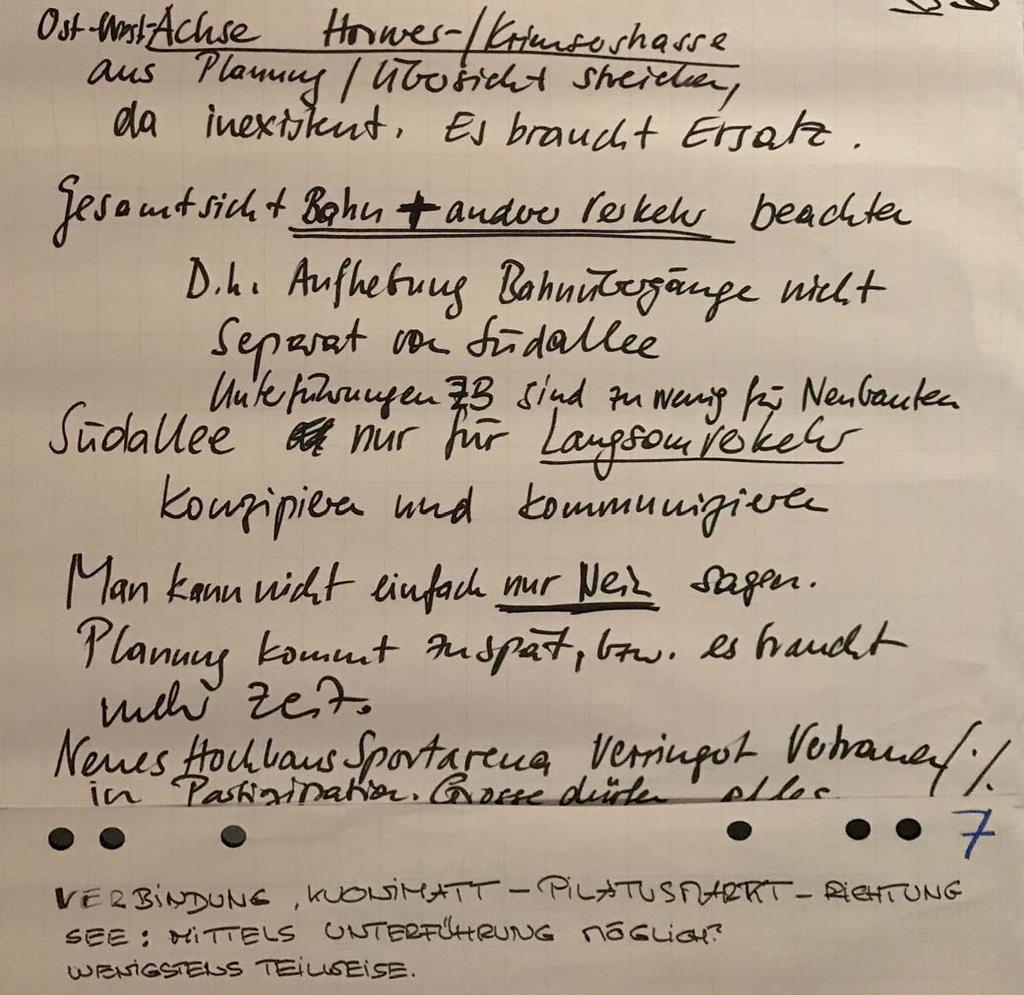 Ost-West-Achse Horwer-/Krienserstrasse
aus Planung / Übersicht streichen,
da inexistent. Es braucht Ersatz.
Gesamtsicht Bahn + anderer Verkehr beachten
D.h. Aufhebung Bahnübergänge nicht
separat von Südallee
Unterführungen ZB sind zu wenig für Neubauten
Südallee nur für Langsamverkehr
konzipieren und kommunizieren
Man kann nicht einfach nur Nein sagen.
Planung kommt zu spät, bzw. es braucht
mehr Zeit.
Neues Hochhaus Sportarena verringert Vertrauen /·/.
in Partizipation. Grosse dürfen alles
7
VERBINDUNG, KUONIMATT – PILATUSMARKT – RICHTUNG
SEE: MITTELS UNTERFÜHRUNG MÖGLICH?
WENIGSTENS TEILWEISE.